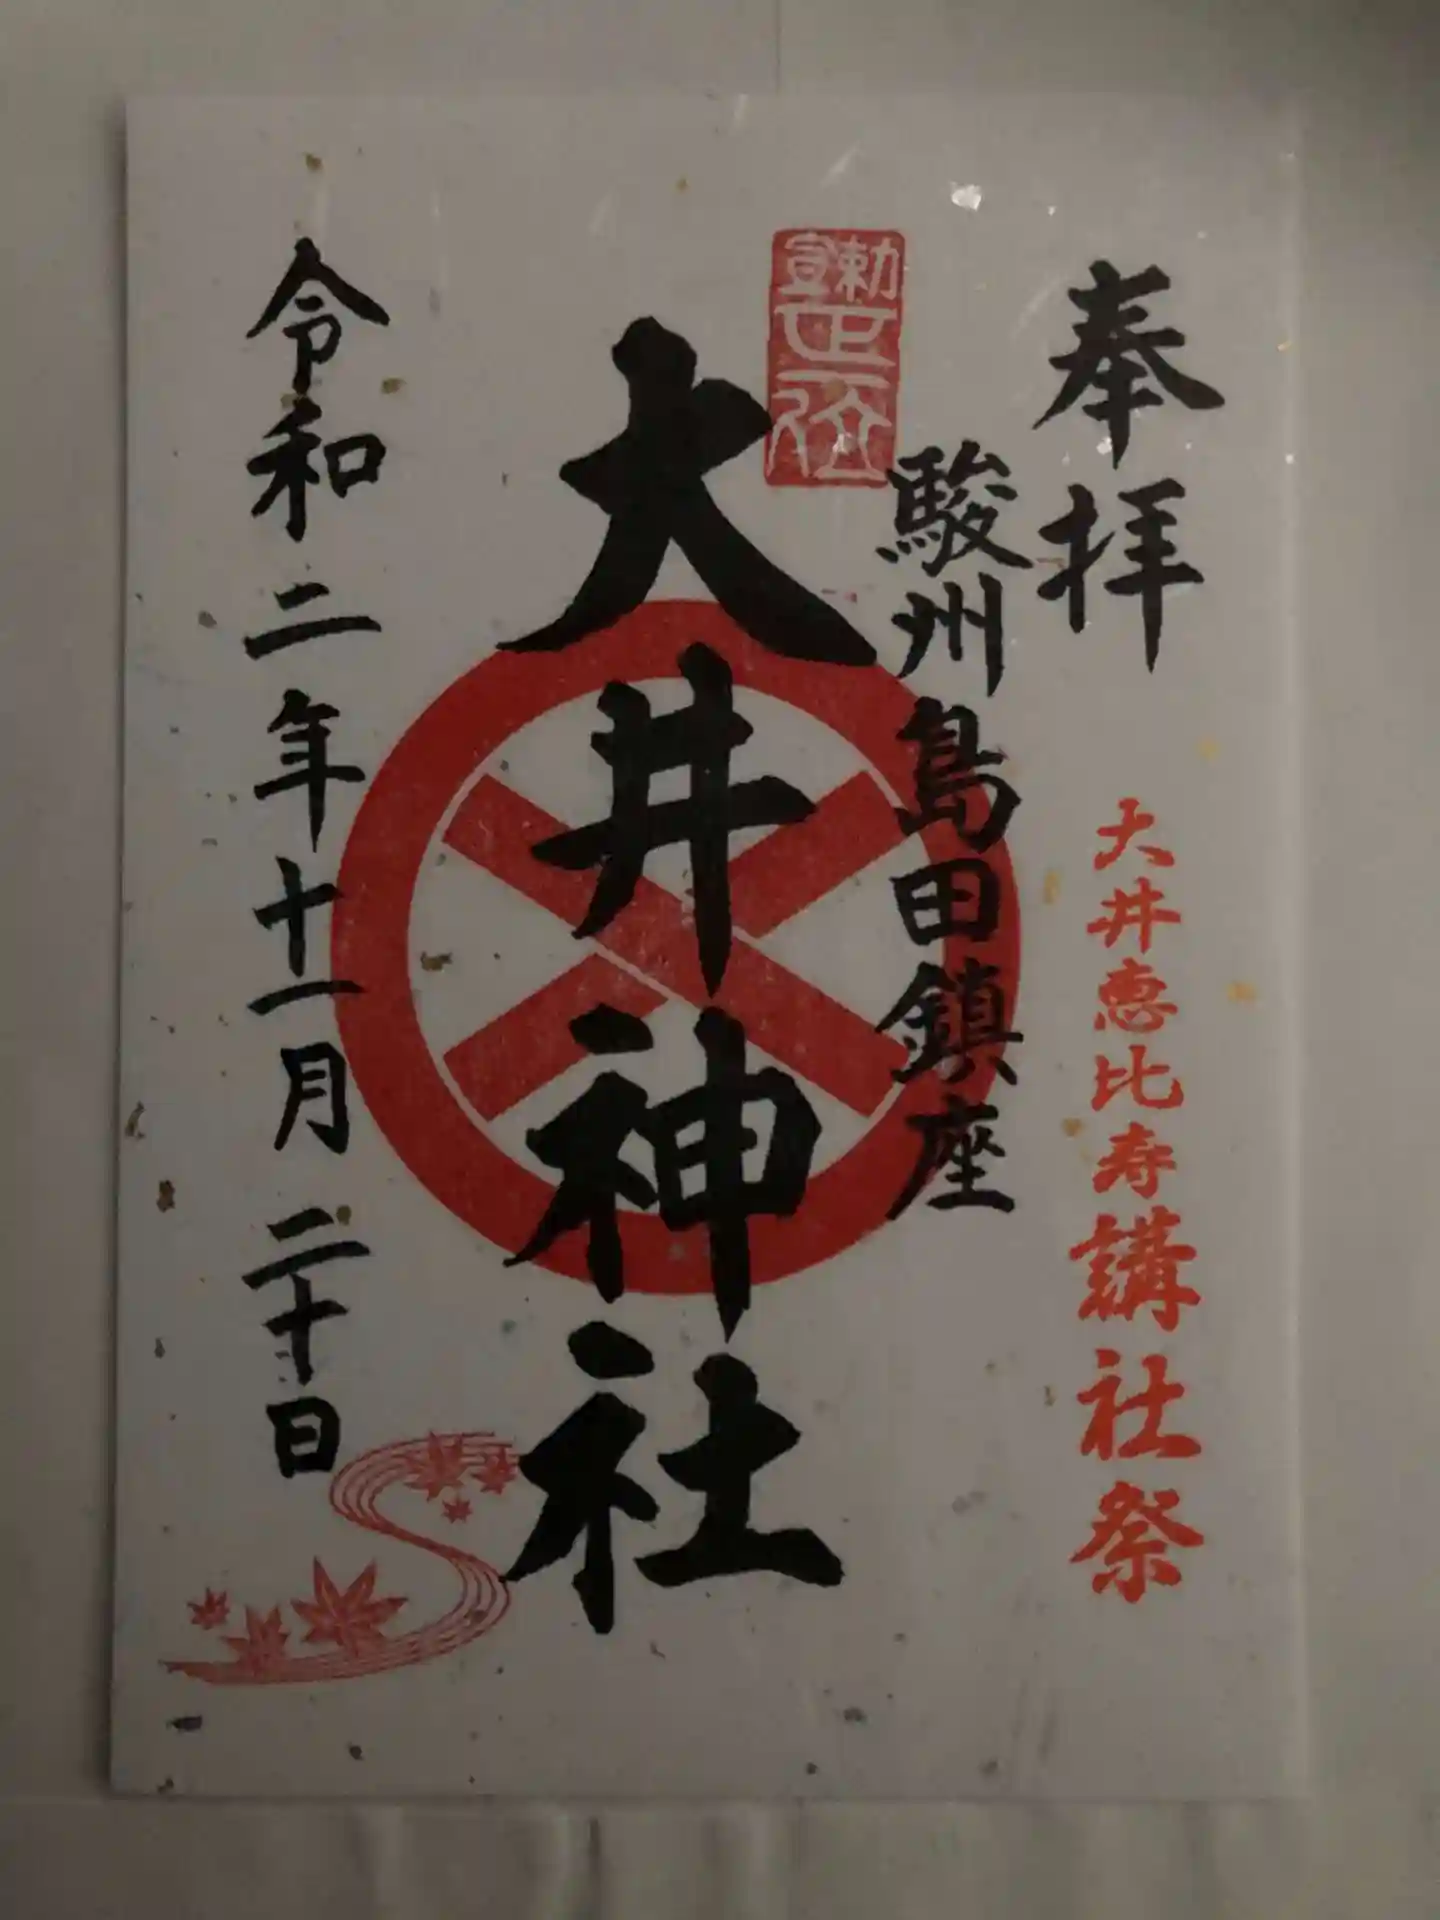 奉拝
大井恵比寿講社祭
駿州島田鎮座
勅宣
正一位
大井神社
令和二年十一月二十日